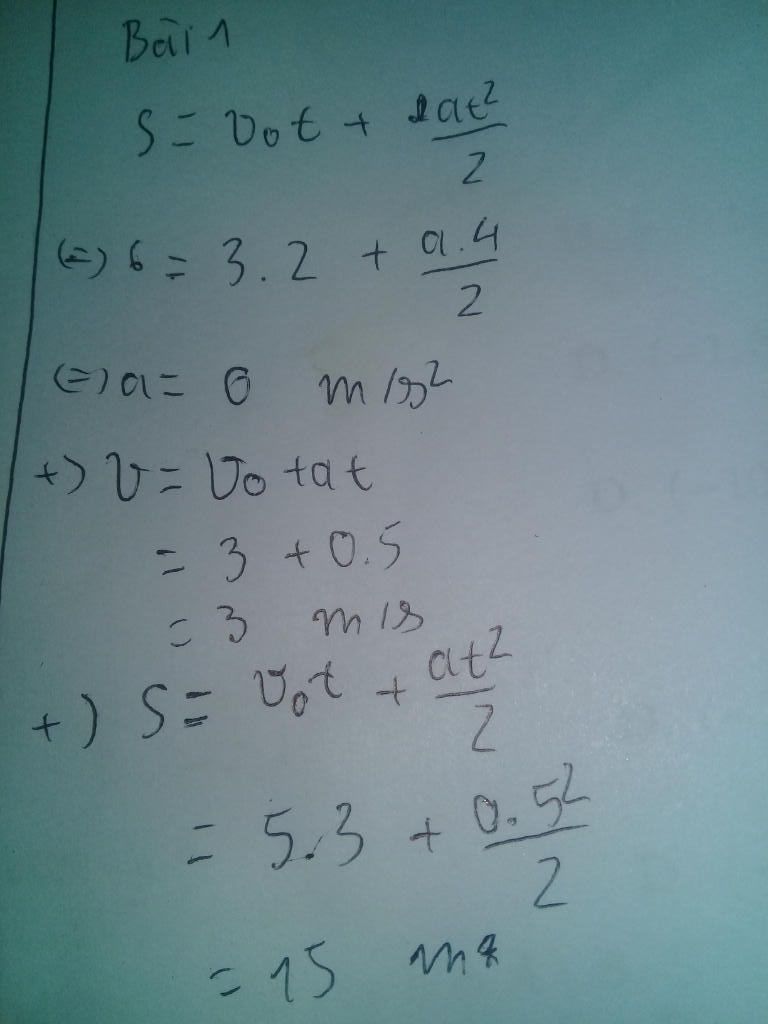 Bài 1
S = v₀t + at²/2
(=) 6 = 3.2 + a.4/2
(=) a = 0 m/s²
+) v = v₀ + at
= 3 + 0.5
= 3 m/s
+) S = v₀t + at²/2
= 5.3 + 0.5²/2
= 15 m